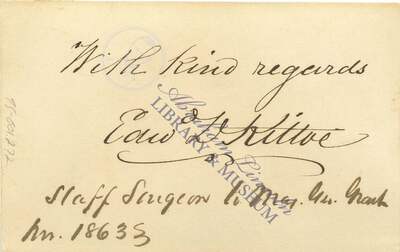 With kind regards
Edw D Kittoe
Staff Surgeon to Maj. Gen. Grant
1863
Abraham Lincoln
LIBRARY & MUSEUM